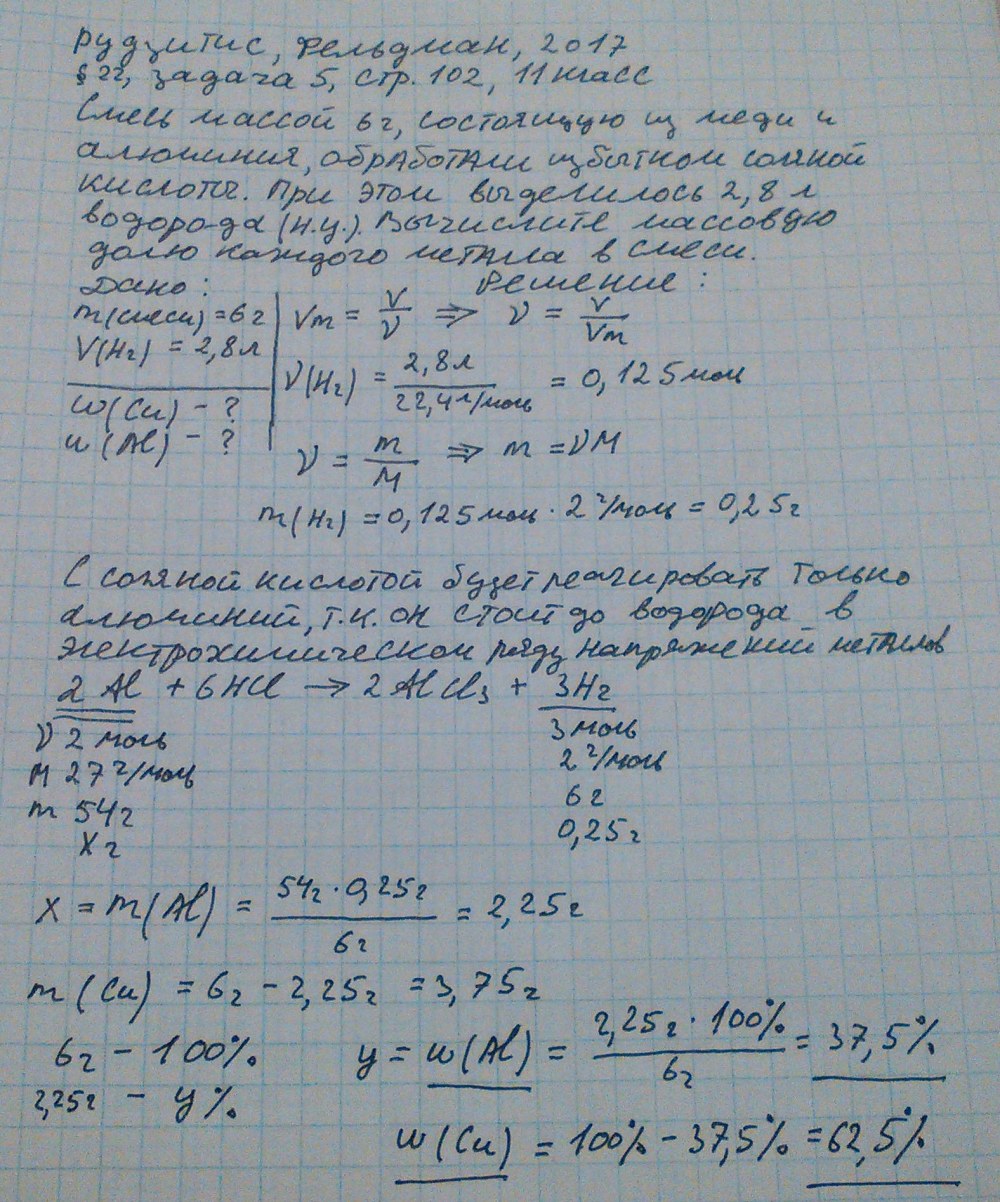 Рудзитис, Фельдман, 2017
§ 22, задача 5, стр. 102, 11 класс
Смесь массой 6г, состоящую из меди и
алюминия, обработали избытком соляной
кислоты. При этом выделилось 2,8 л
водорода (н.у.). Вычислите массовую
долю каждого метала в смеси.
Дано: Решение:
m(смеси) = 6г Vm = V/ν ⇒ ν = V/Vm
V(H₂) = 2,8л
ν(H₂) = 2,8л / 22,4л/моль = 0,125 моль
w(Cu) - ?
w(Al) - ?
ν = m/M ⇒ m = νM
m(H₂) = 0,125моль · 2г/моль = 0,25г
С соляной кислотой будет реагировать только
алюминий, т.к. он стоит до водорода в
электрохимическом ряду напряжений металлов
2Al + 6HCl → 2AlCl₃ + 3H₂
ν 2 моль 3 моль
M 27г/моль 2г/моль
m 54г 6г
Xг 0,25г
X = m(Al) = 54г · 0,25г / 6г = 2,25г
m(Cu) = 6г - 2,25г = 3,75г
6г - 100% y = w(Al) = 2,25г · 100% / 6г = 37,5%
2,25г - y%
w(Cu) = 100% - 37,5% = 62,5%